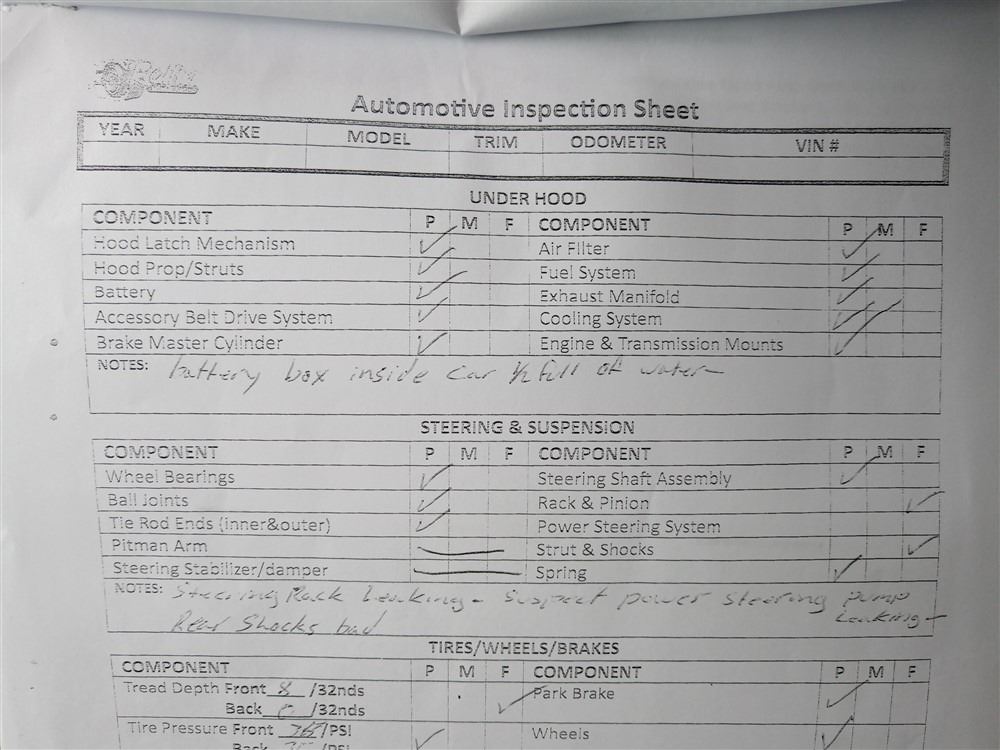 Automotive Inspection Sheet
YEAR MAKE MODEL TRIM ODOMETER VIN #
UNDER HOOD
COMPONENT P M F COMPONENT P M F
Hood Latch Mechanism Air Filter
Hood Prop/Struts Fuel System
Battery Exhaust Manifold
Accessory Belt Drive System Cooling System
Brake Master Cylinder Engine & Transmission Mounts
NOTES: battery box inside car ½ full of water
STEERING & SUSPENSION
COMPONENT P M F COMPONENT P M F
Wheel Bearings Steering Shaft Assembly
Ball Joints Rack & Pinion
Tie Rod Ends (inner&outer) Power Steering System
Pitman Arm Strut & Shocks
Steering Stabilizer/damper Spring
NOTES: Steering Rack Leaking - Suspect power steering pump
Leaking -
Rear Shocks bad
TIRES/WHEELS/BRAKES
COMPONENT P M F COMPONENT P M F
Tread Depth Front 8 /32nds Park Brake
Back /32nds
Tire Pressure Front /PSI Wheels
Back /PSI